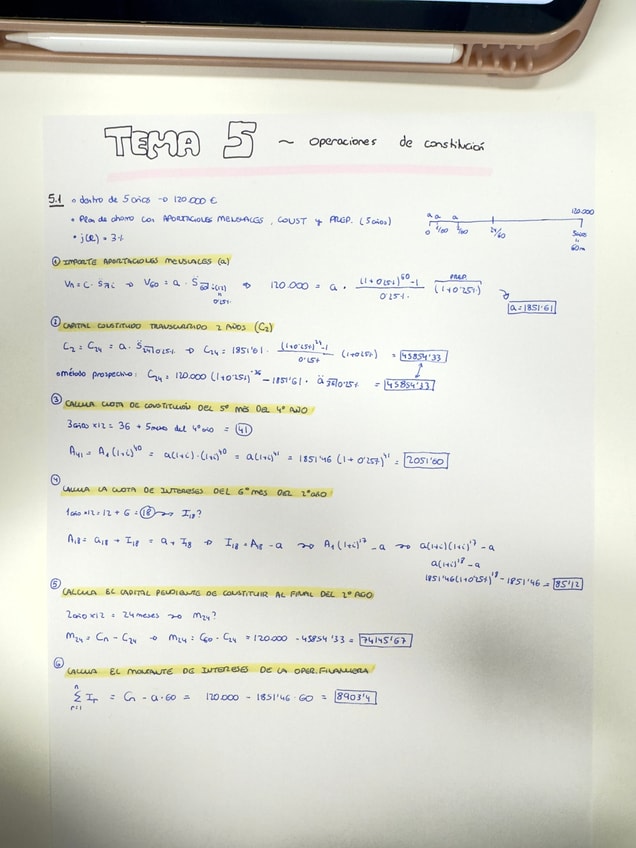 TEMA 5 ~ operaciones de constitución
5.1 • dentro de 5 años → 120.000 €
• Plan de ahorro con APORTACIONES MENSUALES, CONST y PREP. (5 años)
• j(12) = 3%
a a a 120.000
0 1/60 2/60 24/60 5 años = 60m
① IMPORTE APORTACIONES MENSUALES (a)
Vn = C · S̈n¬i → V60 = a · S̈60¬i(12) ⇒ 120.000 = a · ((1+0'25%)^60 - 1)/0'25% · (1+0'25%) PREP.
0'25%
a = 1851'61
② CAPITAL CONSTITUIDO TRANSCURRIDO 2 AÑOS (C2)
C2 = C24 = a · S̈24¬0'25% → C24 = 1851'61 · ((1+0'25%)^24 - 1)/0'25% (1+0'25%) = 45854'33
• método prospectivo: C24 = 120.000 (1+0'25%)^-36 - 1851'61 · ä36¬0'25% = 45854'33
③ CALCULA CUOTA DE CONSTITUCIÓN DEL 5º MES DEL 4º AÑO
3 años x 12 = 36 + 5 meses del 4º año = 41
A41 = A1 (1+i)^40 = a(1+i) · (1+i)^40 = a(1+i)^41 = 1851'46 (1+0'25%)^41 = 2051'60
④ CALCULA LA CUOTA DE INTERESES DEL 6º MES DEL 2º AÑO
1 año x 12 = 12 + 6 = 18 → I18?
A18 = a18 + I18 = a + I18 → I18 = A18 - a → A1 (1+i)^17 - a → a(1+i)(1+i)^17 - a
a(1+i)^18 - a
1851'46 (1+0'25%)^18 - 1851'46 = 85'12
⑤ CALCULA EL CAPITAL PENDIENTE DE CONSTITUIR AL FINAL DEL 2º AÑO
2 año x 12 = 24 meses → M24?
M24 = Cn - C24 → M24 = C60 - C24 = 120.000 - 45854'33 = 74145'67
⑥ CALCULA EL MONTANTE DE INTERESES DE LA OPER. FINANCIERA
n Σ r=1 Ir = Cn - a · 60 = 120.000 - 1851'46 · 60 = 8903'4